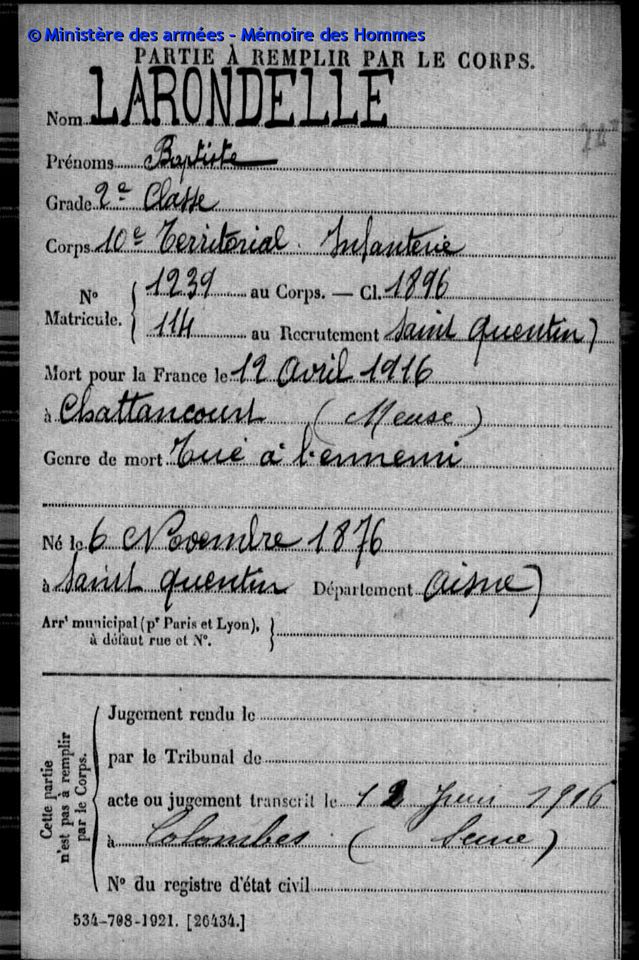 © Ministère des armées - Mémoire des Hommes
PARTIE À REMPLIR PAR LE CORPS.
Nom LARONDELLE
Prénoms Baptiste
Grade 2e Classe
Corps 10e Territorial Infanterie
No Matricule. { 1239 au Corps. — Cl. 1896
114 au Recrutement Saint Quentin)
Mort pour la France le 12 Avril 1916
à Chattancourt (Meuse)
Genre de mort Tué à l'ennemi
Né le 6 Novembre 1876
à Saint Quentin Département Aisne)
Arrt municipal (pr Paris et Lyon), à défaut rue et No. }
Cette partie n'est pas à remplir par le Corps.
Jugement rendu le
par le Tribunal de
acte ou jugement transcrit le 12 Juin 1916
à Colombes (Seine)
No du registre d'état civil
534-708-1921. [26434.]